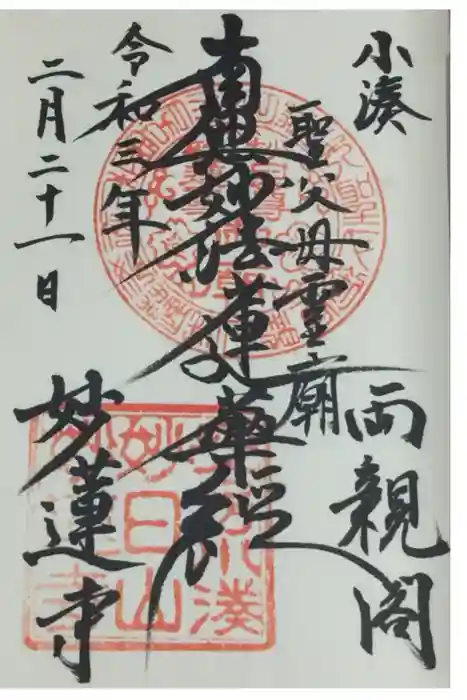 小湊
両親閣
聖父母霊廟
南無妙法蓮華経
令和三年
二月二十一日
妙蓮寺